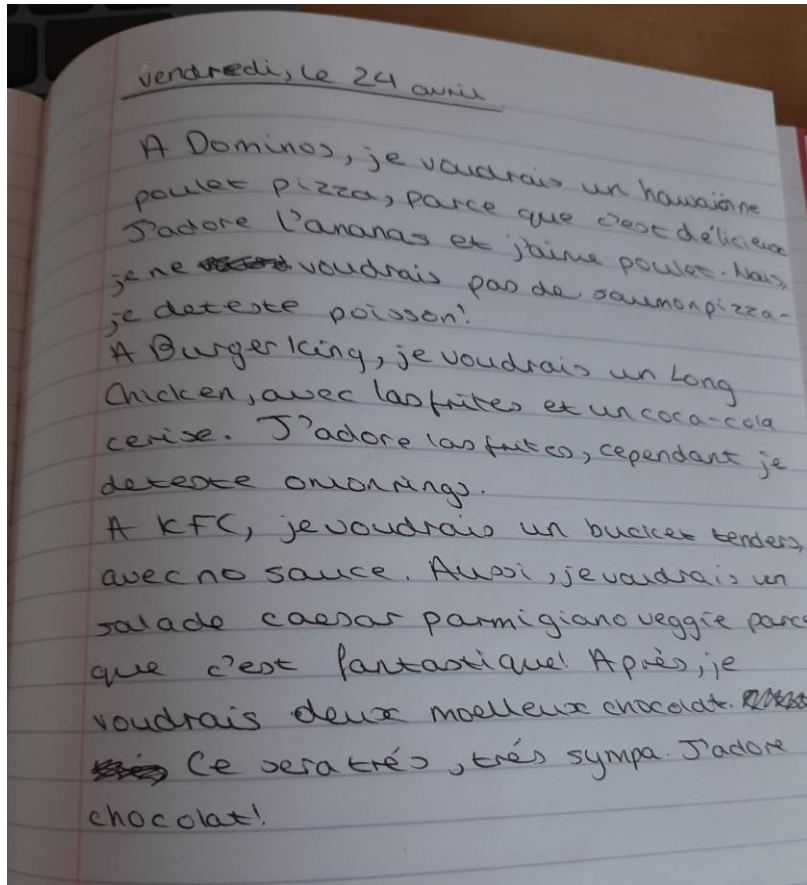 vendredi, le 24 avril
A Dominos, je voudrais un hawaiénne
poulet pizza, parce que c'est délicieux
J'adore l'ananas et j'aime poulet. Mais,
je ne voudrais pas de saumon pizza-
je deteste poisson!
A Burger King, je voudrais un Long
Chicken, avec las frites et un coca-cola
cerise. J'adore las frites, cependant je
deteste onion rings.
A KFC, je voudrais un bucket tenders,
avec no sauce. Aussi, je voudrais un
salade caesar parmigiano veggie parce
que c'est fantastique! Après, je
voudrais deux moelleux chocolat.
Ce sera trés, trés sympa. J'adore
chocolat!